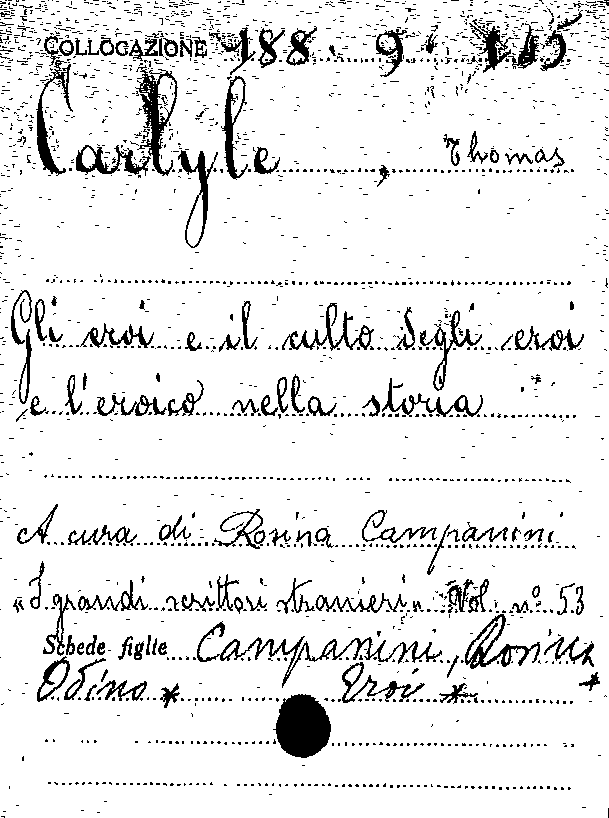 COLLOCAZIONE 188. 9. 115
Carlyle, Thomas
Gli eroi e il culto degli eroi
e l'eroico nella storia
A cura di Rosina Campanini
"I grandi scrittori stranieri" Vol. n° 53
Schede figlie Campanini, Rosina *
Odino * Eroi *